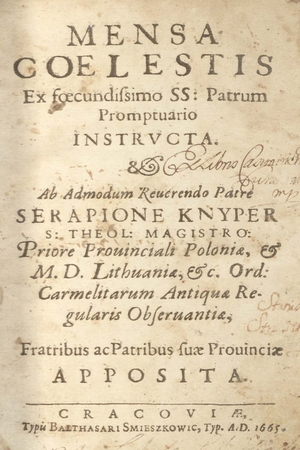 MENSA
COELESTIS
Ex fœcundiſſimo SS: Patrum
Promptuario
INSTRVCTA.
&
Ex Libris
Ab Admodum Reuerendo Patre
SERAPIONE KNYPER
S: THEOL: MAGISTRO:
Priore Prouinciali Poloniæ, &
M. D. Lithuaniæ, &c. Ord:
Carmelitarum Antiquæ Re-
gularis Obſeruantiæ,
Fratribus ac Patribus ſuæ Prouinciæ
APPOSITA.
CRACOVIÆ,
Typis BALTHASARI SMIESZKOWIC, Typ. A.D. 1665.